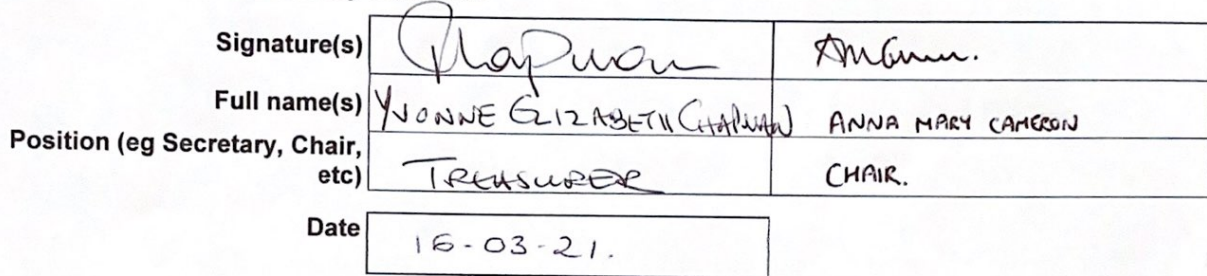 Signature(s) Chapman
Full name(s) YVONNE ELIZABETH CHAPMAN ANNA MARY CAMERON
Position (eg Secretary, Chair,
etc) TREASURER CHAIR.
Date 16-03-21.